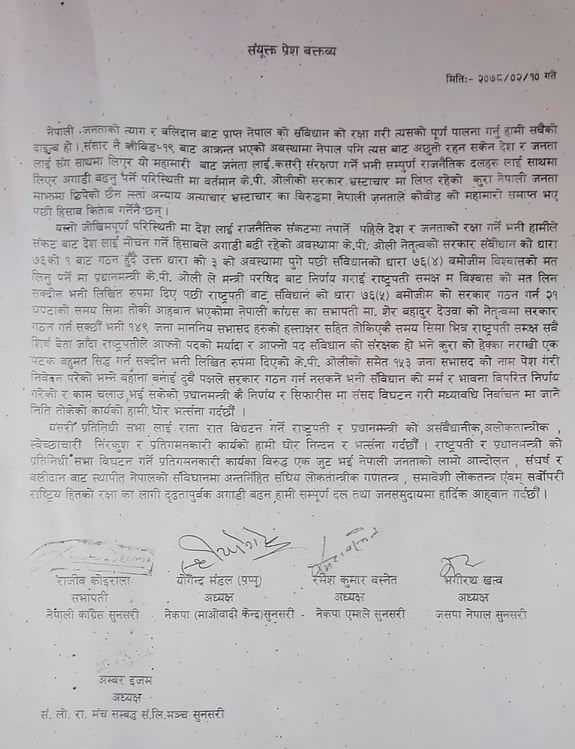 संयूक्त प्रेश वक्तव्य
मितिः- २०७८/०२/१० गते
नेपाली जनताको त्याग र बलिदान बाट प्राप्त नेपाल को संविधान को रक्षा गरी त्यसको पूर्ण पालना गर्नु हामी सबैको
दाइत्व हो । संसार नै कोविड-१९ बाट आक्रान्त भएको अवस्थामा नेपाल पनि त्यस बाट अछुतो रहन सकेन देश र जनता
लाई संग साथमा लिएर यो महामारी बाट जनता लाई कसरी संरक्षण गर्ने भनी सम्पुर्ण राजनैतिक दलहरु लाई साथमा
लिएर अगाडी बढनु पर्ने परिस्थिती मा बर्तमान के.पी. ओलीको सरकार भ्रस्टाचार मा लिप्त रहेको कुरा नेपाली जनता
माझमा छिपेको छैन त्स्ता अन्याय अत्याचार भ्रस्टाचार का बिरुद्धमा नेपाली जनताले कोबीड को महामारी समाप्त भए
पछी हिसाब किताब गर्नेनै छन् ।
यस्तो जोखिमपूर्ण परिस्थिती मा देश लाई राजनैतिक संकटमा नपार्ने पहिले देश र जनताको रक्षा गर्ने भनी हामीले
संकट बाट देश लाई मोचन गर्ने हिसाबले अगाडी बढी रहेको अवस्थामा के.पी. ओली नेतृत्वको सरकार संबीधान को धारा
७६को १ बाट गठन हुँदै उक्त धारा को ३ को अवस्था पुगे पछी संविधानको धारा ७६(४) बमोजीम विश्वासको मत
लिनु पर्ने मा प्रधानमन्त्री के.पी. ओली ले मन्त्री परषिद बाट निर्णय गराई राष्ट्रपती समक्ष म विश्वास को मत लिन
सक्दीन भनी लिखीत रुपमा दिए पछी राष्ट्रपती बाट संविधान को धारा ७६(५) बमोजीम को सरकार गठन गर्न २१
घण्टाको समय सिमा तोकी आहवान भएकोमा नेपाली कांग्रेस का सभापती मा. शेर बहादुर देउवा को नेतृत्वमा सरकार
गठन गर्न सक्छौं भनी १४९ जना माननिय सभासद हरुको हस्ताक्षर सहित तोकिएकै समय सिमा भित्र राष्ट्रपती समक्ष सबै
शिर्ष नेता जाँदा राष्ट्रपतीले आफ्नो पदको मर्यादा र आफ्नो पद संविधान को संरक्षक हो भने कुरा को हेक्का नराखी एक
पटक बहुमत सिद्ध गर्न सक्दीन भनी लिखीत रुपमा दिएको के.पी. ओलीको समेत १५३ जना सभासद को नाम पेश गरी
निवेदन परेको भन्ने बहाना बनाई दुबै पक्षले सरकार गठन गर्न नसकने भनी संविधान को मर्म र भावना विपरित निर्णय
गरेको र काम चलाउ भई सकेको प्रधानमन्त्री कै निर्णय र सिफारीस मा संसद विघटन गरी मध्यावधि निर्वाचन मा जाने
निति तोकेको कार्यको हामी घोर भर्त्सना गर्दछौं ।
यसरी प्रतिनिधी सभा लाई राता रात विघटन गर्ने राष्ट्रपती र प्रधानमन्त्री को असंवैधानीक,अलोकतान्त्रीक ,
स्वेच्छाचारी निरंकुश र प्रतिगमनकारी कार्यको हामी घोर निन्दन र भर्त्सना गर्दछौं । राष्ट्रपती र प्रधानमन्त्री को
प्रतिनिधी सभा विघटन गर्ने प्रतिगमनकारी कार्यका विरुद्ध एक जुट भई नेपाली जनताको लामो आन्दोलन , संघर्ष र
बलीदान बाट स्थापीत नेपालको संविधानमा अन्तर्निहित संघिय लोकतान्त्रीक गणतन्त्र , समावेशी लोकतन्त्र एंवम् सर्वोपरी
राष्ट्रिय हितको रक्षा का लागी दृढतापुर्वक अगाडी बढ्न हामी सम्पूर्ण दल तथा जनसमुदायमा हार्दिक आहवान गर्दछौं ।
राजीव कोइराला
योगेन्द्र मंडल (पप्पू)
रमेश कुमार वस्नेत
भगीरथ खत्व
सभापती
अध्यक्ष
अध्यक्ष
अध्यक्ष
नेपाली कांग्रेस सुनसरी
नेकपा (माओवादी केन्द्र)सुनसरी
नेकपा एमाले सुनसरी
जसपा नेपाल सुनसरी
अम्बर इजम
अध्यक्ष
सं. लो. रा. मंच सम्बद्ध सं.लि.मञ्च सुनसरी